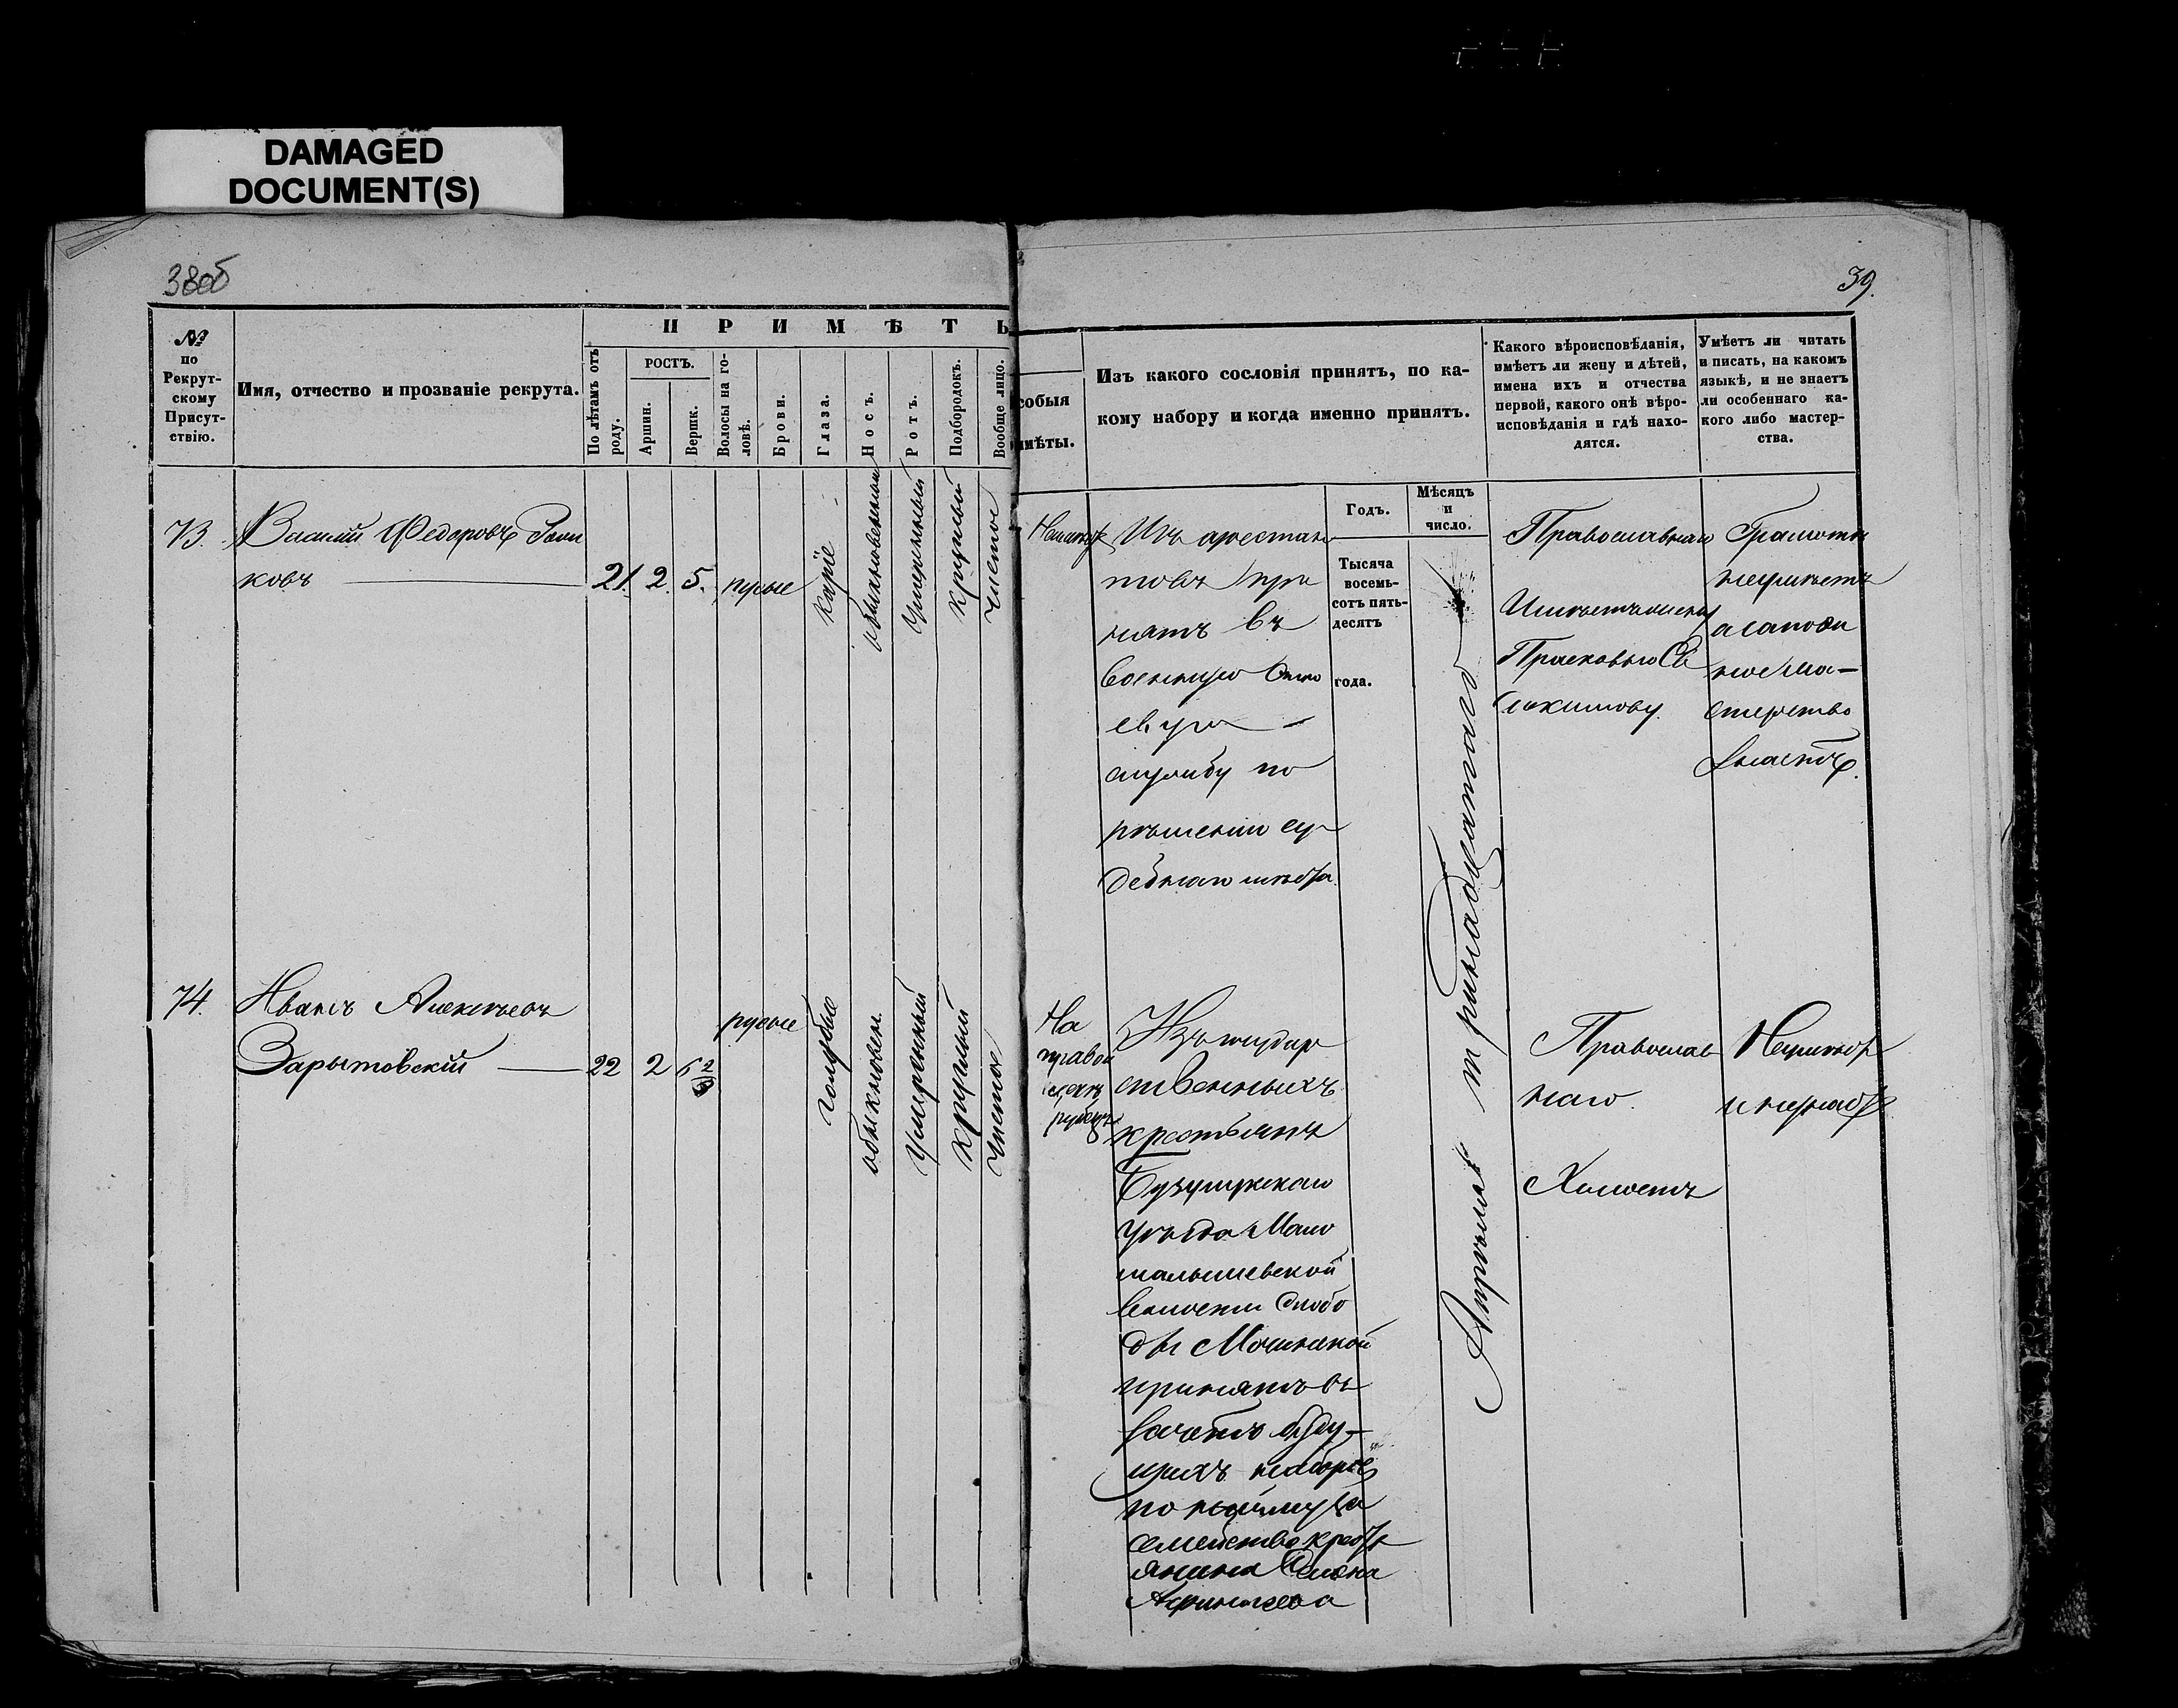 DAMAGED
DOCUMENT(S)
38об
39.
№
по
Рекрут-
скому
Присут-
ствію.
Имя, отчество и прозваніе рекрута.
ПРИМѢТЫ
По лѣтамъ отъ
роду.
РОСТЪ.
Аршин.
Вершк.
Волосы на го-
ловѣ.
Брови.
Глаза.
Носъ.
Ротъ.
Подбородокъ.
Вообще лицо.
собыя
имѣты.
Изъ какого сословія принятъ, по ка-
кому набору и когда именно принятъ.
Какого вѣроисповѣданія,
имѣетъ ли жену и дѣтей,
имена ихъ и отчества
первой, какого онѣ вѣро-
исповѣданія и гдѣ нахо-
дятся.
Умѣетъ ли читать
и писать, на какомъ
языкѣ, и не знаетъ
ли особеннаго ка-
кого либо мастер-
ства.
Годъ.
Мѣсяцъ
и
число.
Тысяча
восемь-
сотъ пять-
десятъ
года.
73.
Василій Федоровъ
ковъ
21. 2. 5. русые
каріе
обыкновенный
Умеренный
круглый
чистое
Изъ арестан
товъ при
нятъ въ
военную
службу по
рѣшенію су
дебнаго мѣста
Апрѣля тринадцатаго
Православнаго
Имѣетъ жену
Прасковью
Грамоты
неумѣетъ
а сапож
ное ма-
стерство
знаетъ.
74.
Иванъ Алексѣевъ
Зарытовскій
22 2
русые
голубые
обыкновен.
Умеренный
круглый
чистое
На
правой
рубецъ
Изъ государ
ственныхъ
крестьянъ
Бузулукскаго
уѣзда Мало
малышевской
волости Слобо
ды
принятъ въ
зачетъ буду-
щихъ наборовъ
по найму за
семейство крест
янина
Православ
наго.
Холостъ
Неумѣет
и незнает